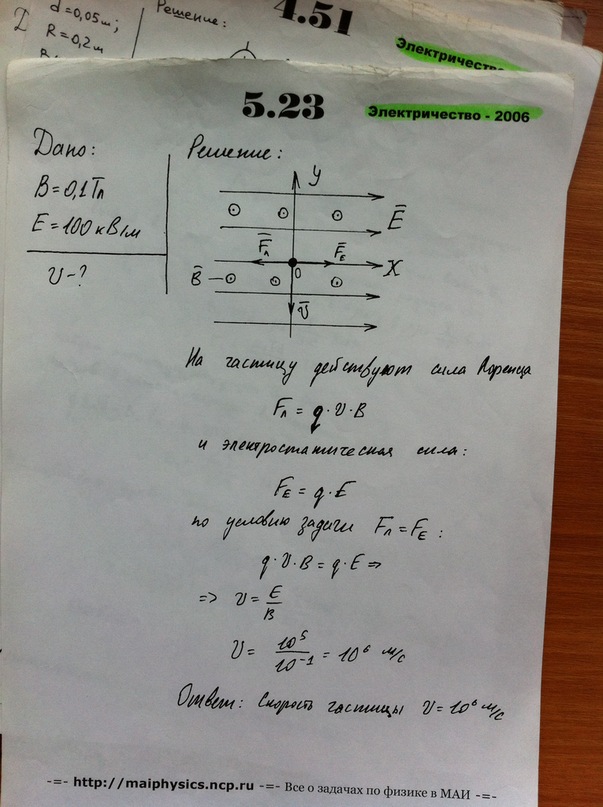 d = 0,05 м;
R = 0,2 м
Решение:
4.51
Электричество
5.23
Электричество - 2006
Дано:
B = 0,1 Тл
E = 100 кВ/м
υ - ?
Решение:
y
E̅
F̅л
F̅E
B̅
0
X
υ̅
На частицу действуют сила Лоренца
Fл = q · υ · B
и электростатическая сила:
FE = q · E
по условию задачи Fл = FE :
q · υ · B = q · E =>
=> υ = E/B
υ = 10⁵/10⁻¹ = 10⁶ м/с
Ответ: Скорость частицы υ = 10⁶ м/с
-=- http://maiphysics.ncp.ru -=- Все о задачах по физике в МАИ -=-